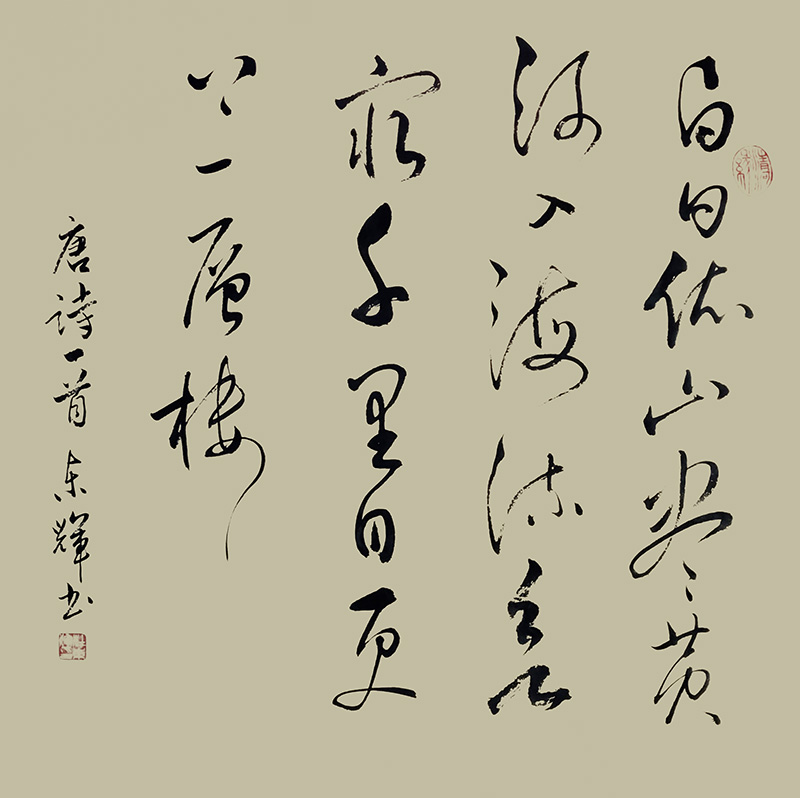 白日依山尽黄
河入海流欲
穷千里目更
上一層楼
唐诗一首 东輝书